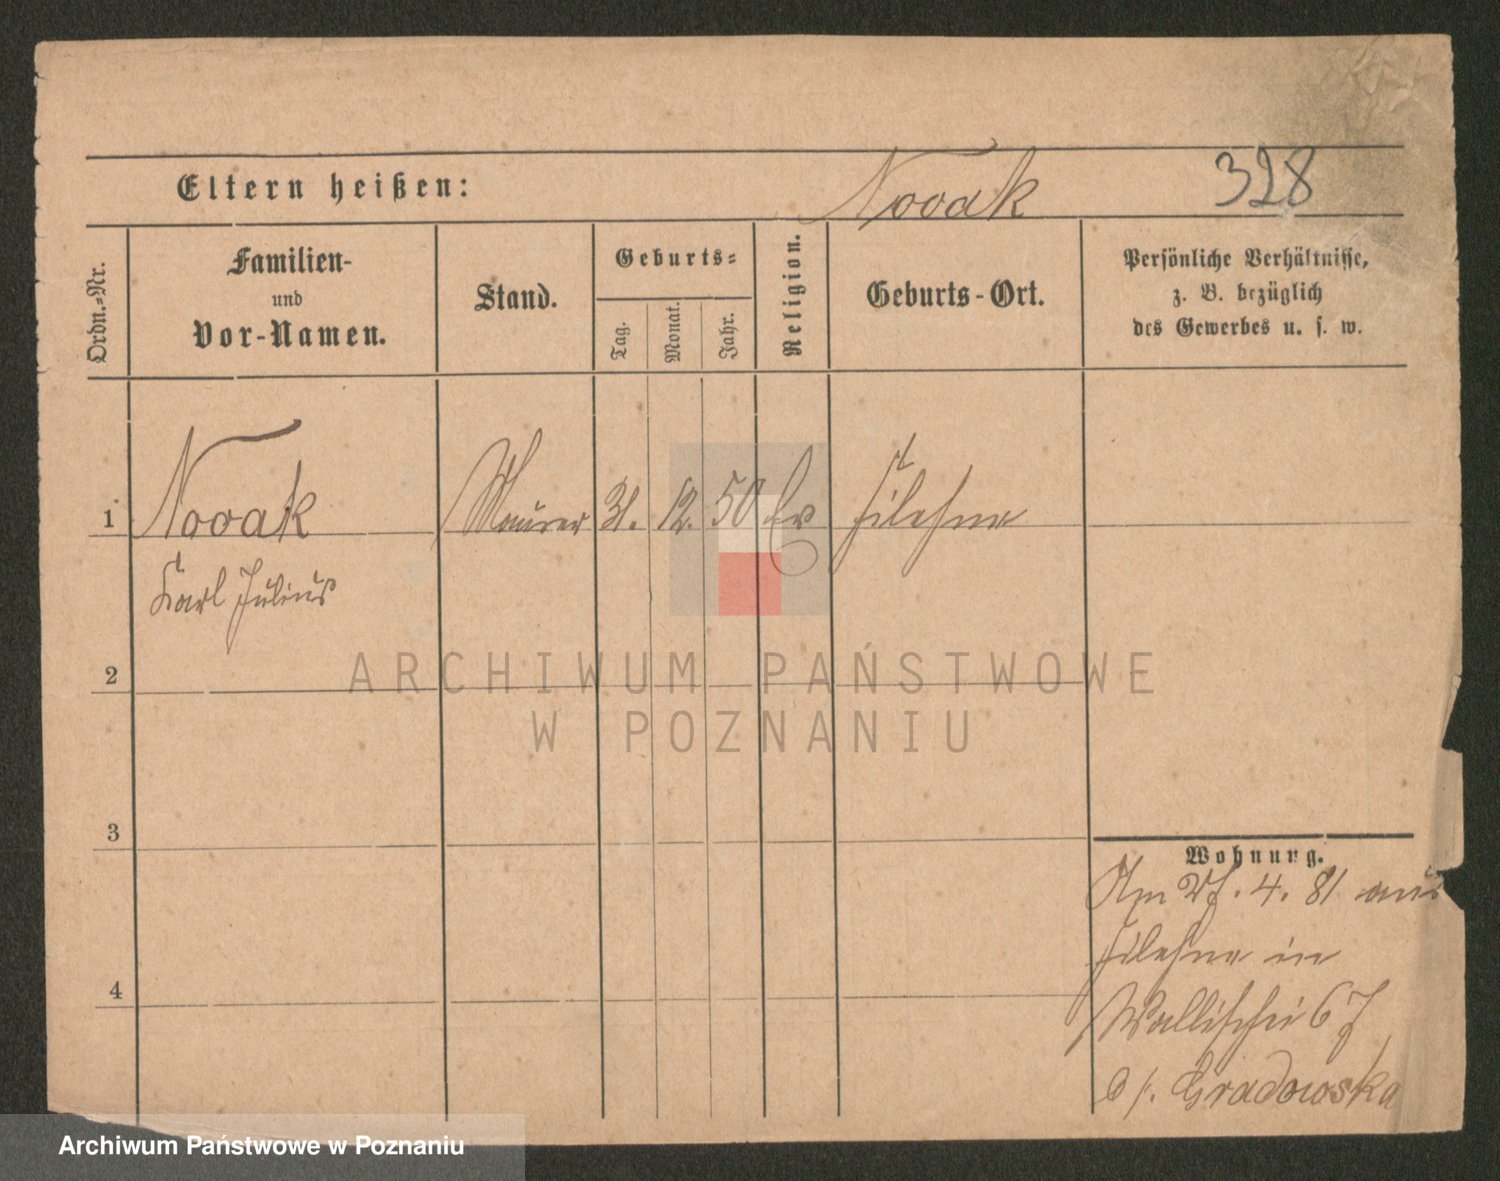 Eltern heißen:
Novak
328
Ordn.-Nr.
Familien-
und
Vor-Namen.
Stand.
Geburts-
Tag.
Monat.
Jahr.
Religion.
Geburts-Ort.
Persönliche Verhältnisse,
z. B. bezüglich
des Gewerbes u. s. w.
1
Novak
Maurer
31.
12.
50
Ev
Filehne
Karl Julius
2
3
4
Wohnung.
Am 4. 81 aus
Filehne in
Wallischei 67
b/. Gradowska
ARCHIWUM PAŃSTWOWE
W POZNANIU
Archiwum Państwowe w Poznaniu